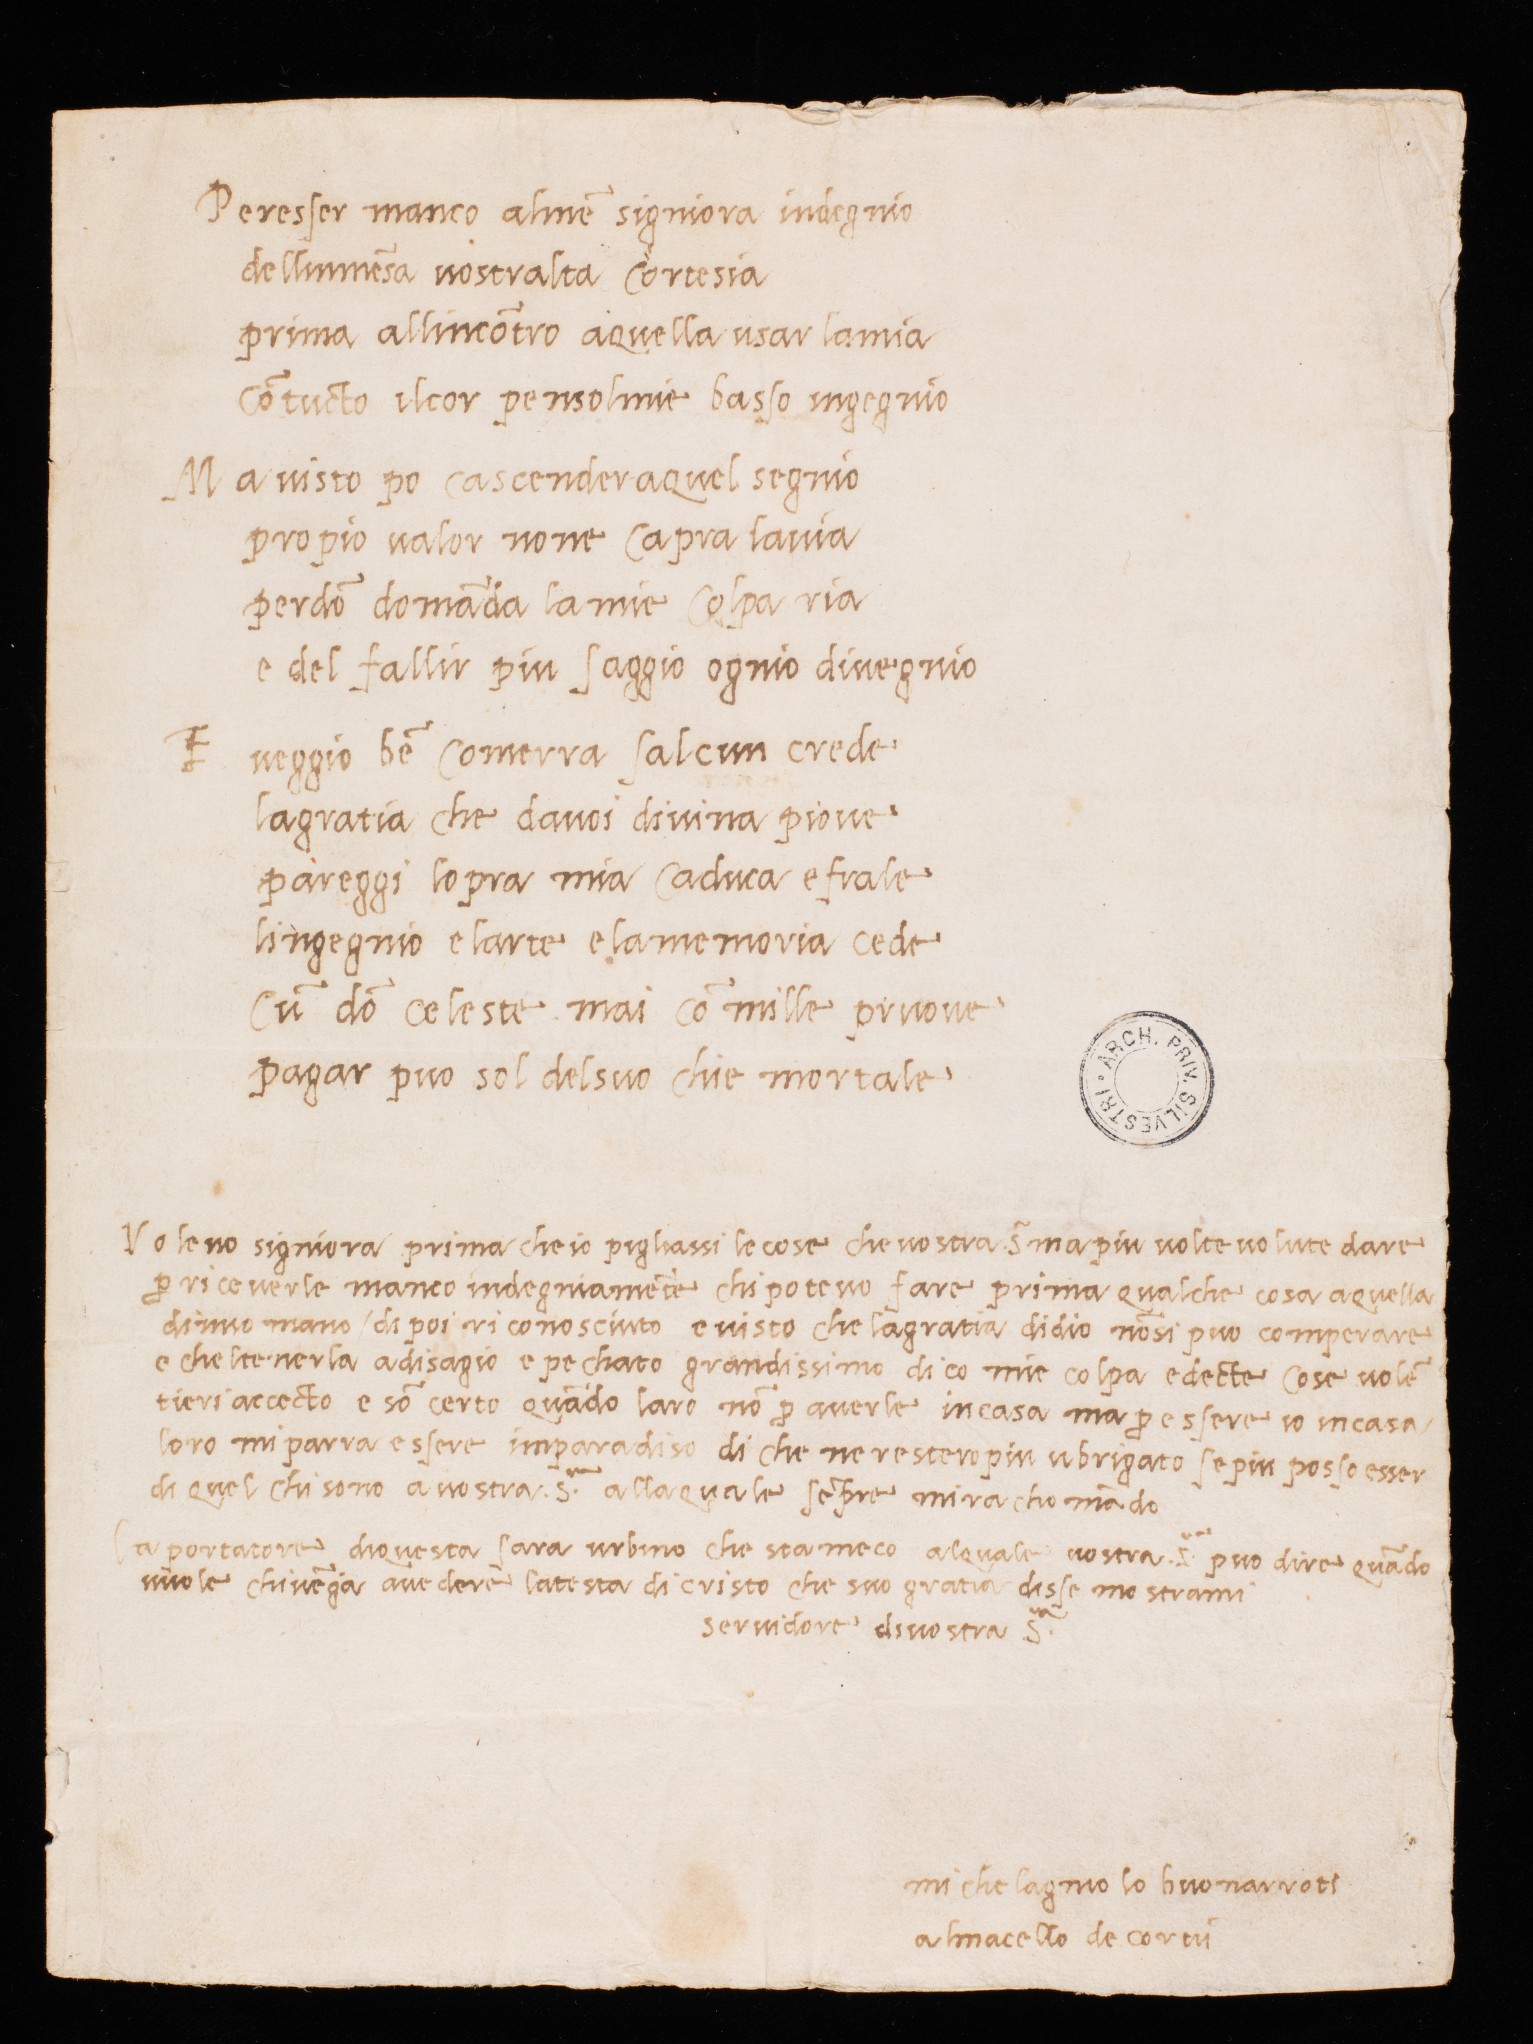 Peresser manco almē signiora indegnio
dellimmēsa vostralta cortesia
prima allincōtro aquella usar lamia
cō tucto ilcor pensolmie basso ingegnio
Ma visto po cascenderaquel segnio
propio valor none capra lavia
perdō domāda lamie colpa ria
e del fallir piu saggio ognio divegnio
E veggio bē comerra salcun crede
lagratia che davoi divina piove
pareggi lopra mia caduca efrale
lingegnio elarte elamemoria cede
cū dō celeste mai cō mille pruove
pagar puo sol delsuo chie mortale
ARCH. PRIV. SILVESTRI
Volevo signiora prima cheio pigliassi lecose chevostra S mapiu volte volute dare
p riceverle manco indegniamēte chipotevo fare prima qualche cosa aquella
dimmo mano / di poi riconosciuto evisto che lagratia didio nōsi puo comperare
e cheltenerla adisagio e pechato grandissimo dico mie colpa edecte cose volē
tieri accecto e sō certo quādo larō nō p averle incasa ma p essere io incasa
loro miparra essere imparadiso di che neresteropiu ubrigato sepiu posso esser
di quel chi sono avostra .S. allaquale sēpre mirachomādo
laportatore diquesta sara urbino che stameco alquale vostra .S. puo dire quādo
vuole chivēga avedere latesta di cristo che suo gratia disse mostrami
servidore divostra S.
michelagniolo buonarroti
almacello de corvi